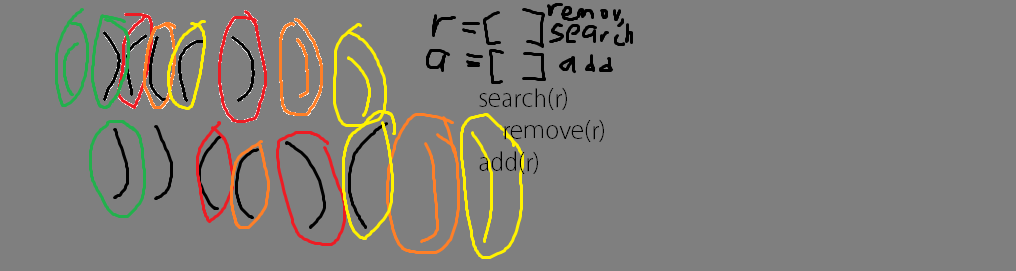 ( ) ( ( ( ) ) )
r = [ ] remov, search
a = [ ] add
search(r)
remove(r)
add(r)
) ) ( ( ) ( ) )